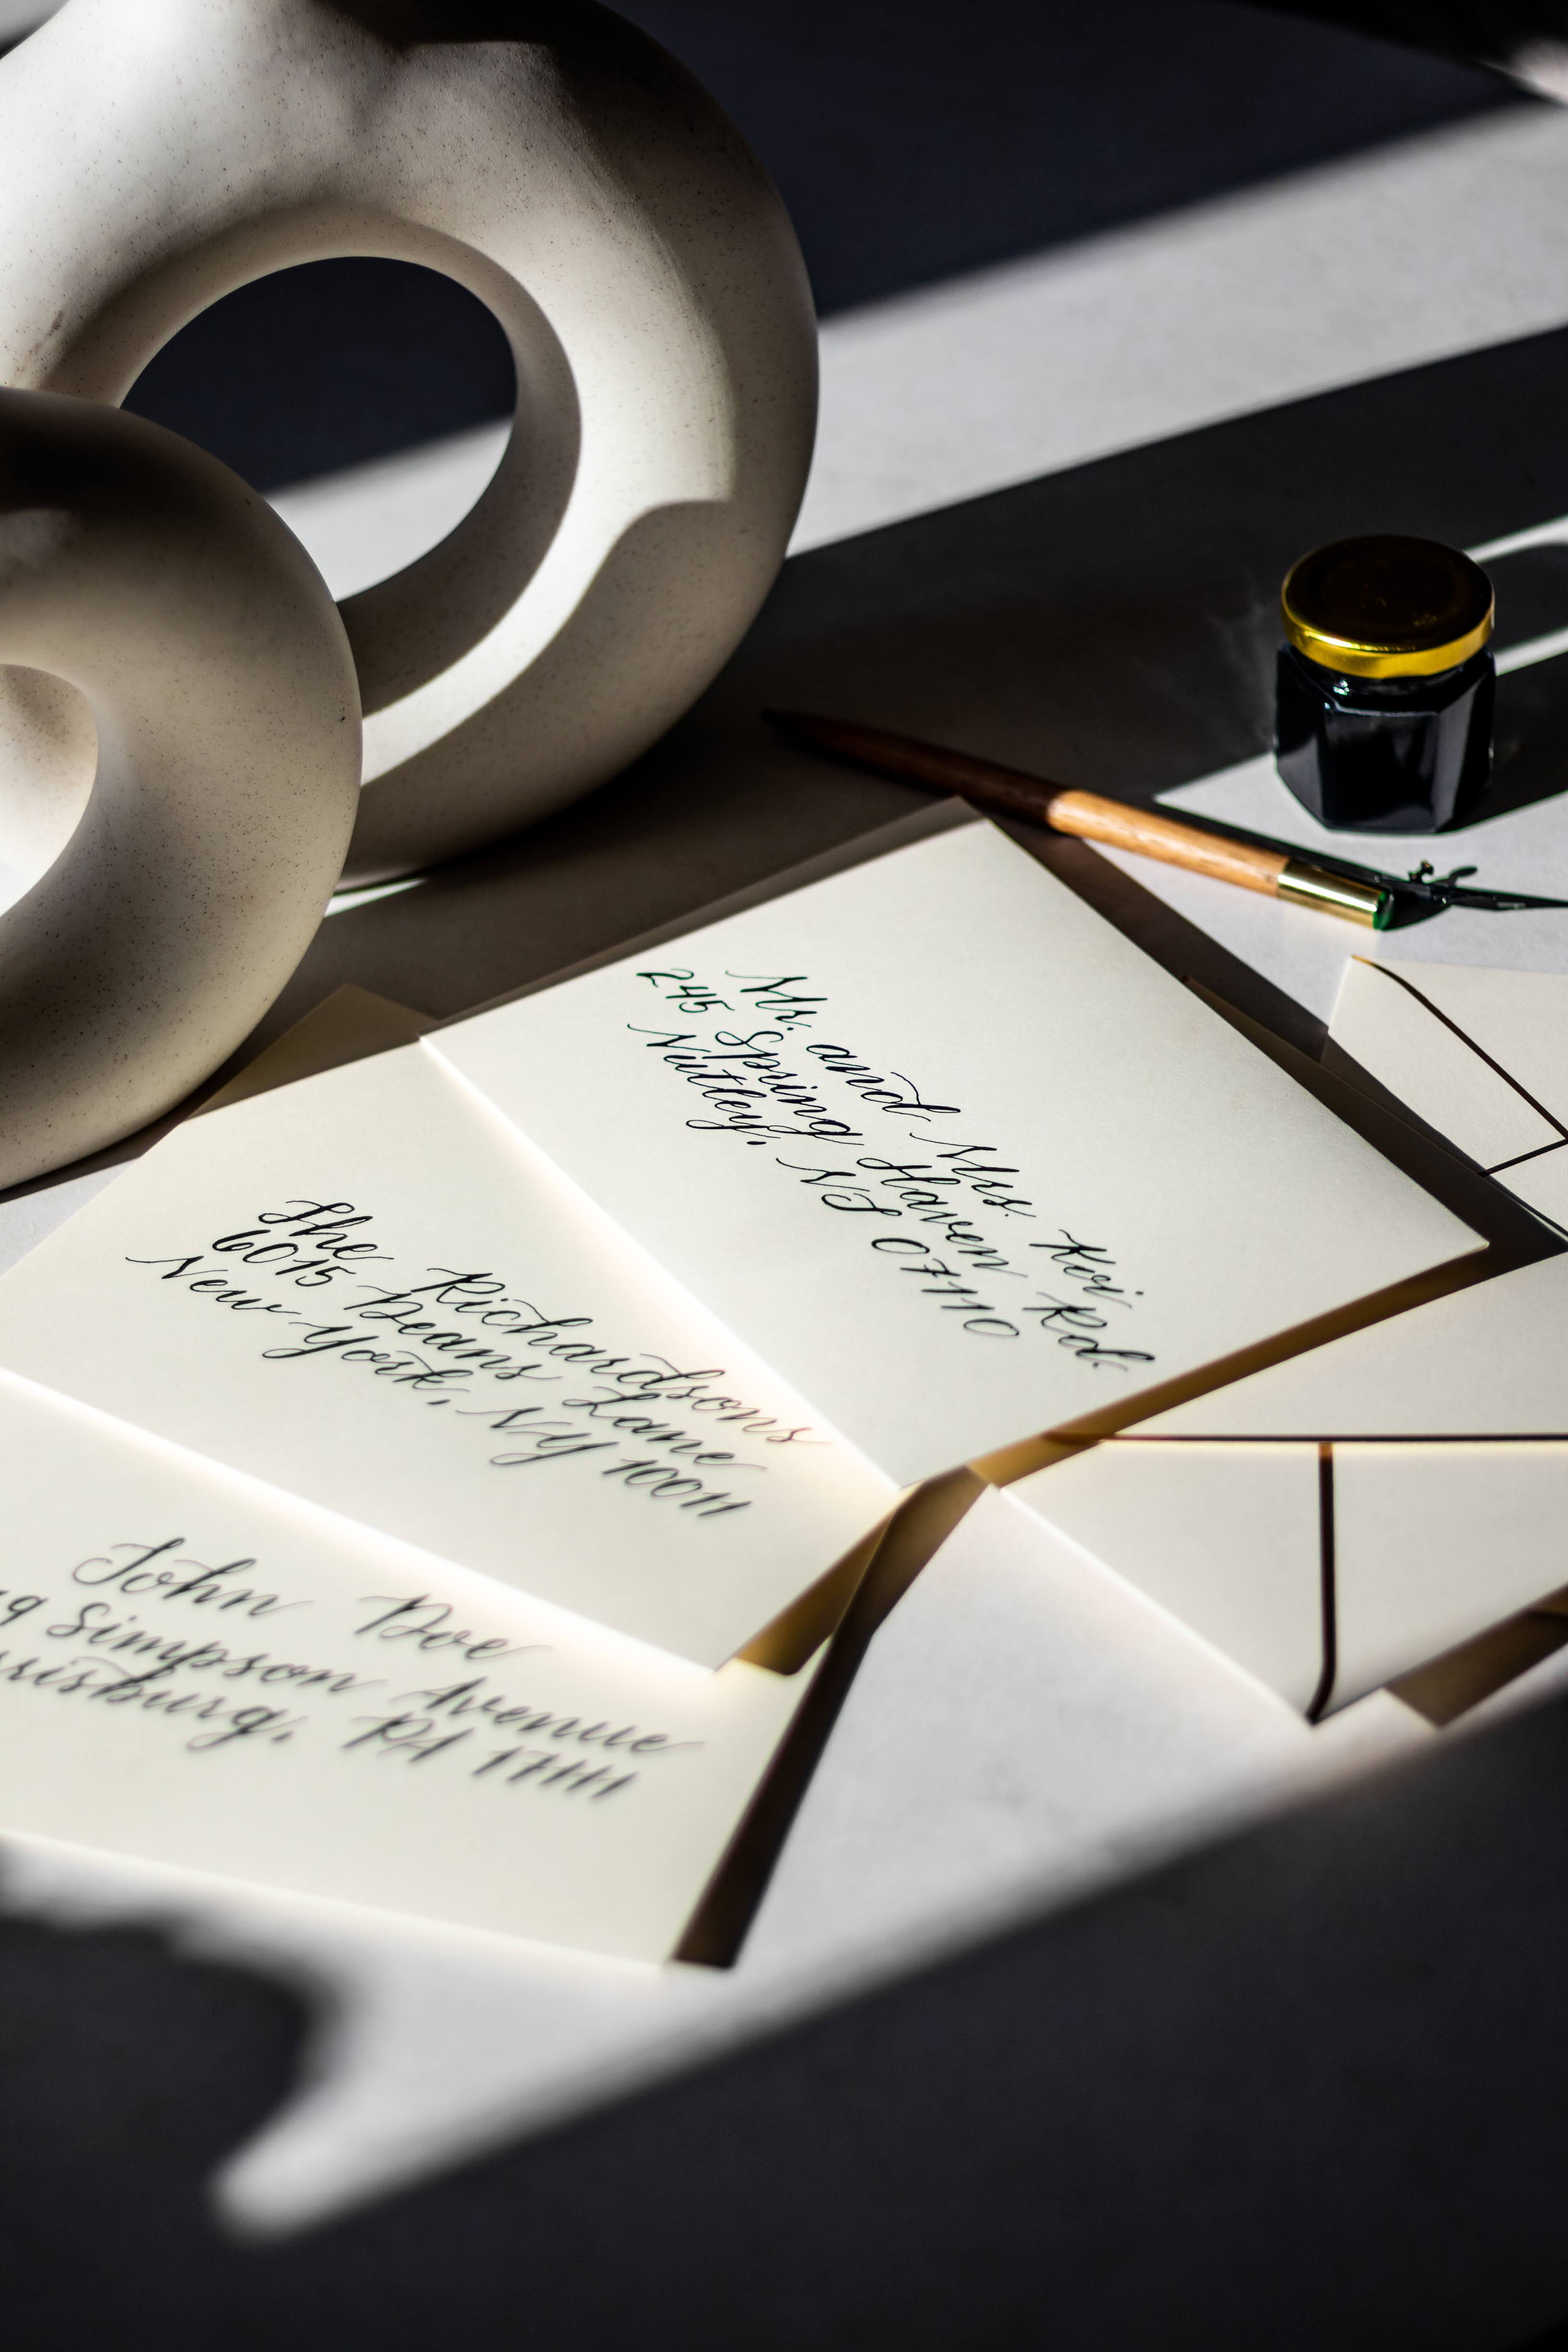 Mr. and Mrs. Kivi
245 Spring Haven Rd.
Nutley, NJ 07110
The Richardsons
6015 Deans Lane
New York, NY 10011
John Doe
Simpson Avenue
PA 17111